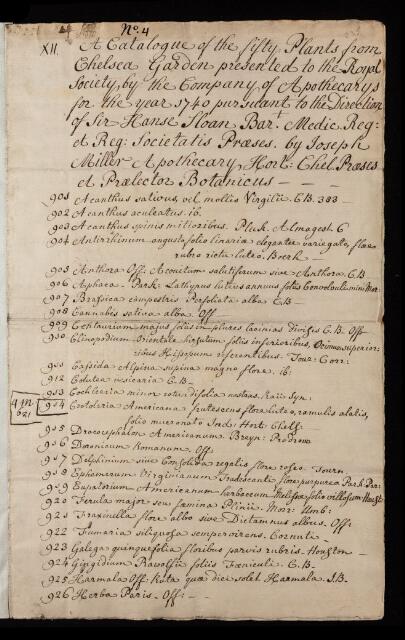 No. 4
XII A Catalogue of the fifty Plants from
Chelsea Garden presented to the Royal
Society, by the Company of Apothecarys
for the year 1740 pursuant to the Direction
of Sir Hanse Sloan Bart. Medic Reg:
et Reg: Societatis Præses. by Joseph
Miller Apothecary, Hort: Chel. Præses
et Prælector Botanicus — —
901 Acanthus sativus, vel mollis Virgilii. C.B. 383 —
902 Acanthus aculeatus. ib.
903 Acanthus spinis mitioribus. Pluk. Almagest. 6
904 Antirrhinum angusto folio linariæ eleganter variegato, flore
rubro rictu luteo. Boerh —
905 Anthora Off: Aconitum salutiferum sive Anthora. C.B
906 Aphaca. Park: Lathyrus luteus annuus foliis Convolvuli minr: Mor:
907 Brassica campestris Perfoliata alba C B —
908 Cannabis sativa alba. Off
909 Centaurium majus foliis in plures lacinias divisis C.B. Off
910 Clinopodium Orientale hirsutum foliis inferioribus, Ocimum superior-
ribus Hissopum referentibus. Tour: Corr:
911 Cassida Alpina supina magno flore. ib:
912 Colutea vesicaria C.B —
913 Cochlearia minor rotundifolia nostras. Raii Syn:
914 Crotolaria Americana frutescens flore luteo, ramulis alatis,
folio mucronato Ind: Hort: Chelf:
915 Dracocephalon Americanum Breyn: Prodrom
916 Doronicum Romanum. Off:
917 Delphinium sive Consolida regalis flore roseo. Tourn.
918 Ephemerum Virginianum Tradescanti flore purpureo Park: Par:
919 Eupatorium Americanum herbaceum Melissæ folio villosum Houst
920 Ferula major seu fæmina Plinii. Mor: Umb:
921 Fraxinella flore albo sive Dictamnus albus. Off:
922 Fumaria siliquosa sempervirens. Cornuti —
923 Galega quinquefolia floribus parvis rubris. Houston —
924 Gingidium Rauolfii foliis Fœniculi. C.B.
925 Harmala Off: Ruta quæ dici solet Harmala. I.B.
926 Herba Paris. Off: —